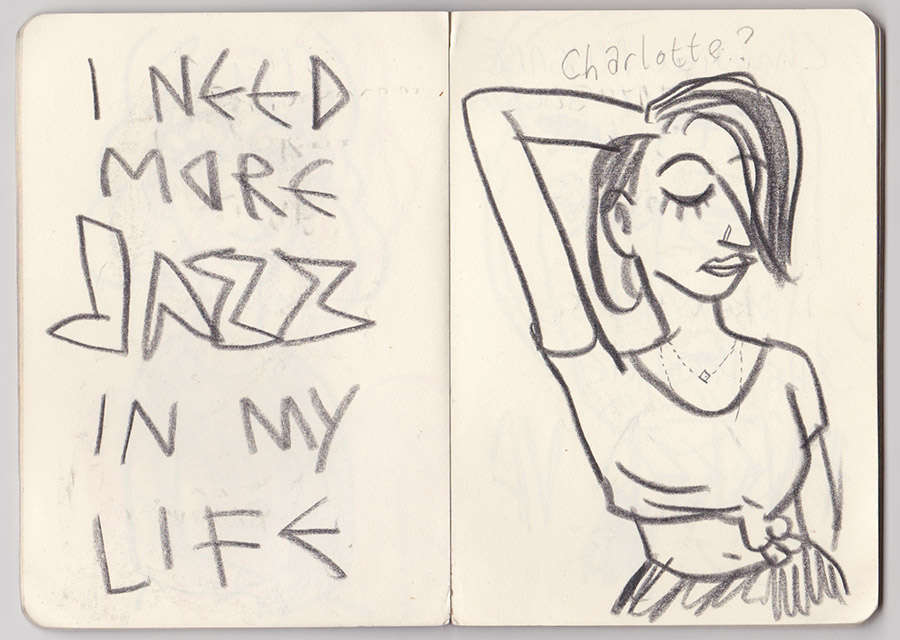 I NEED
MORE
JAZZ
IN MY
LIFE
Charlotte?